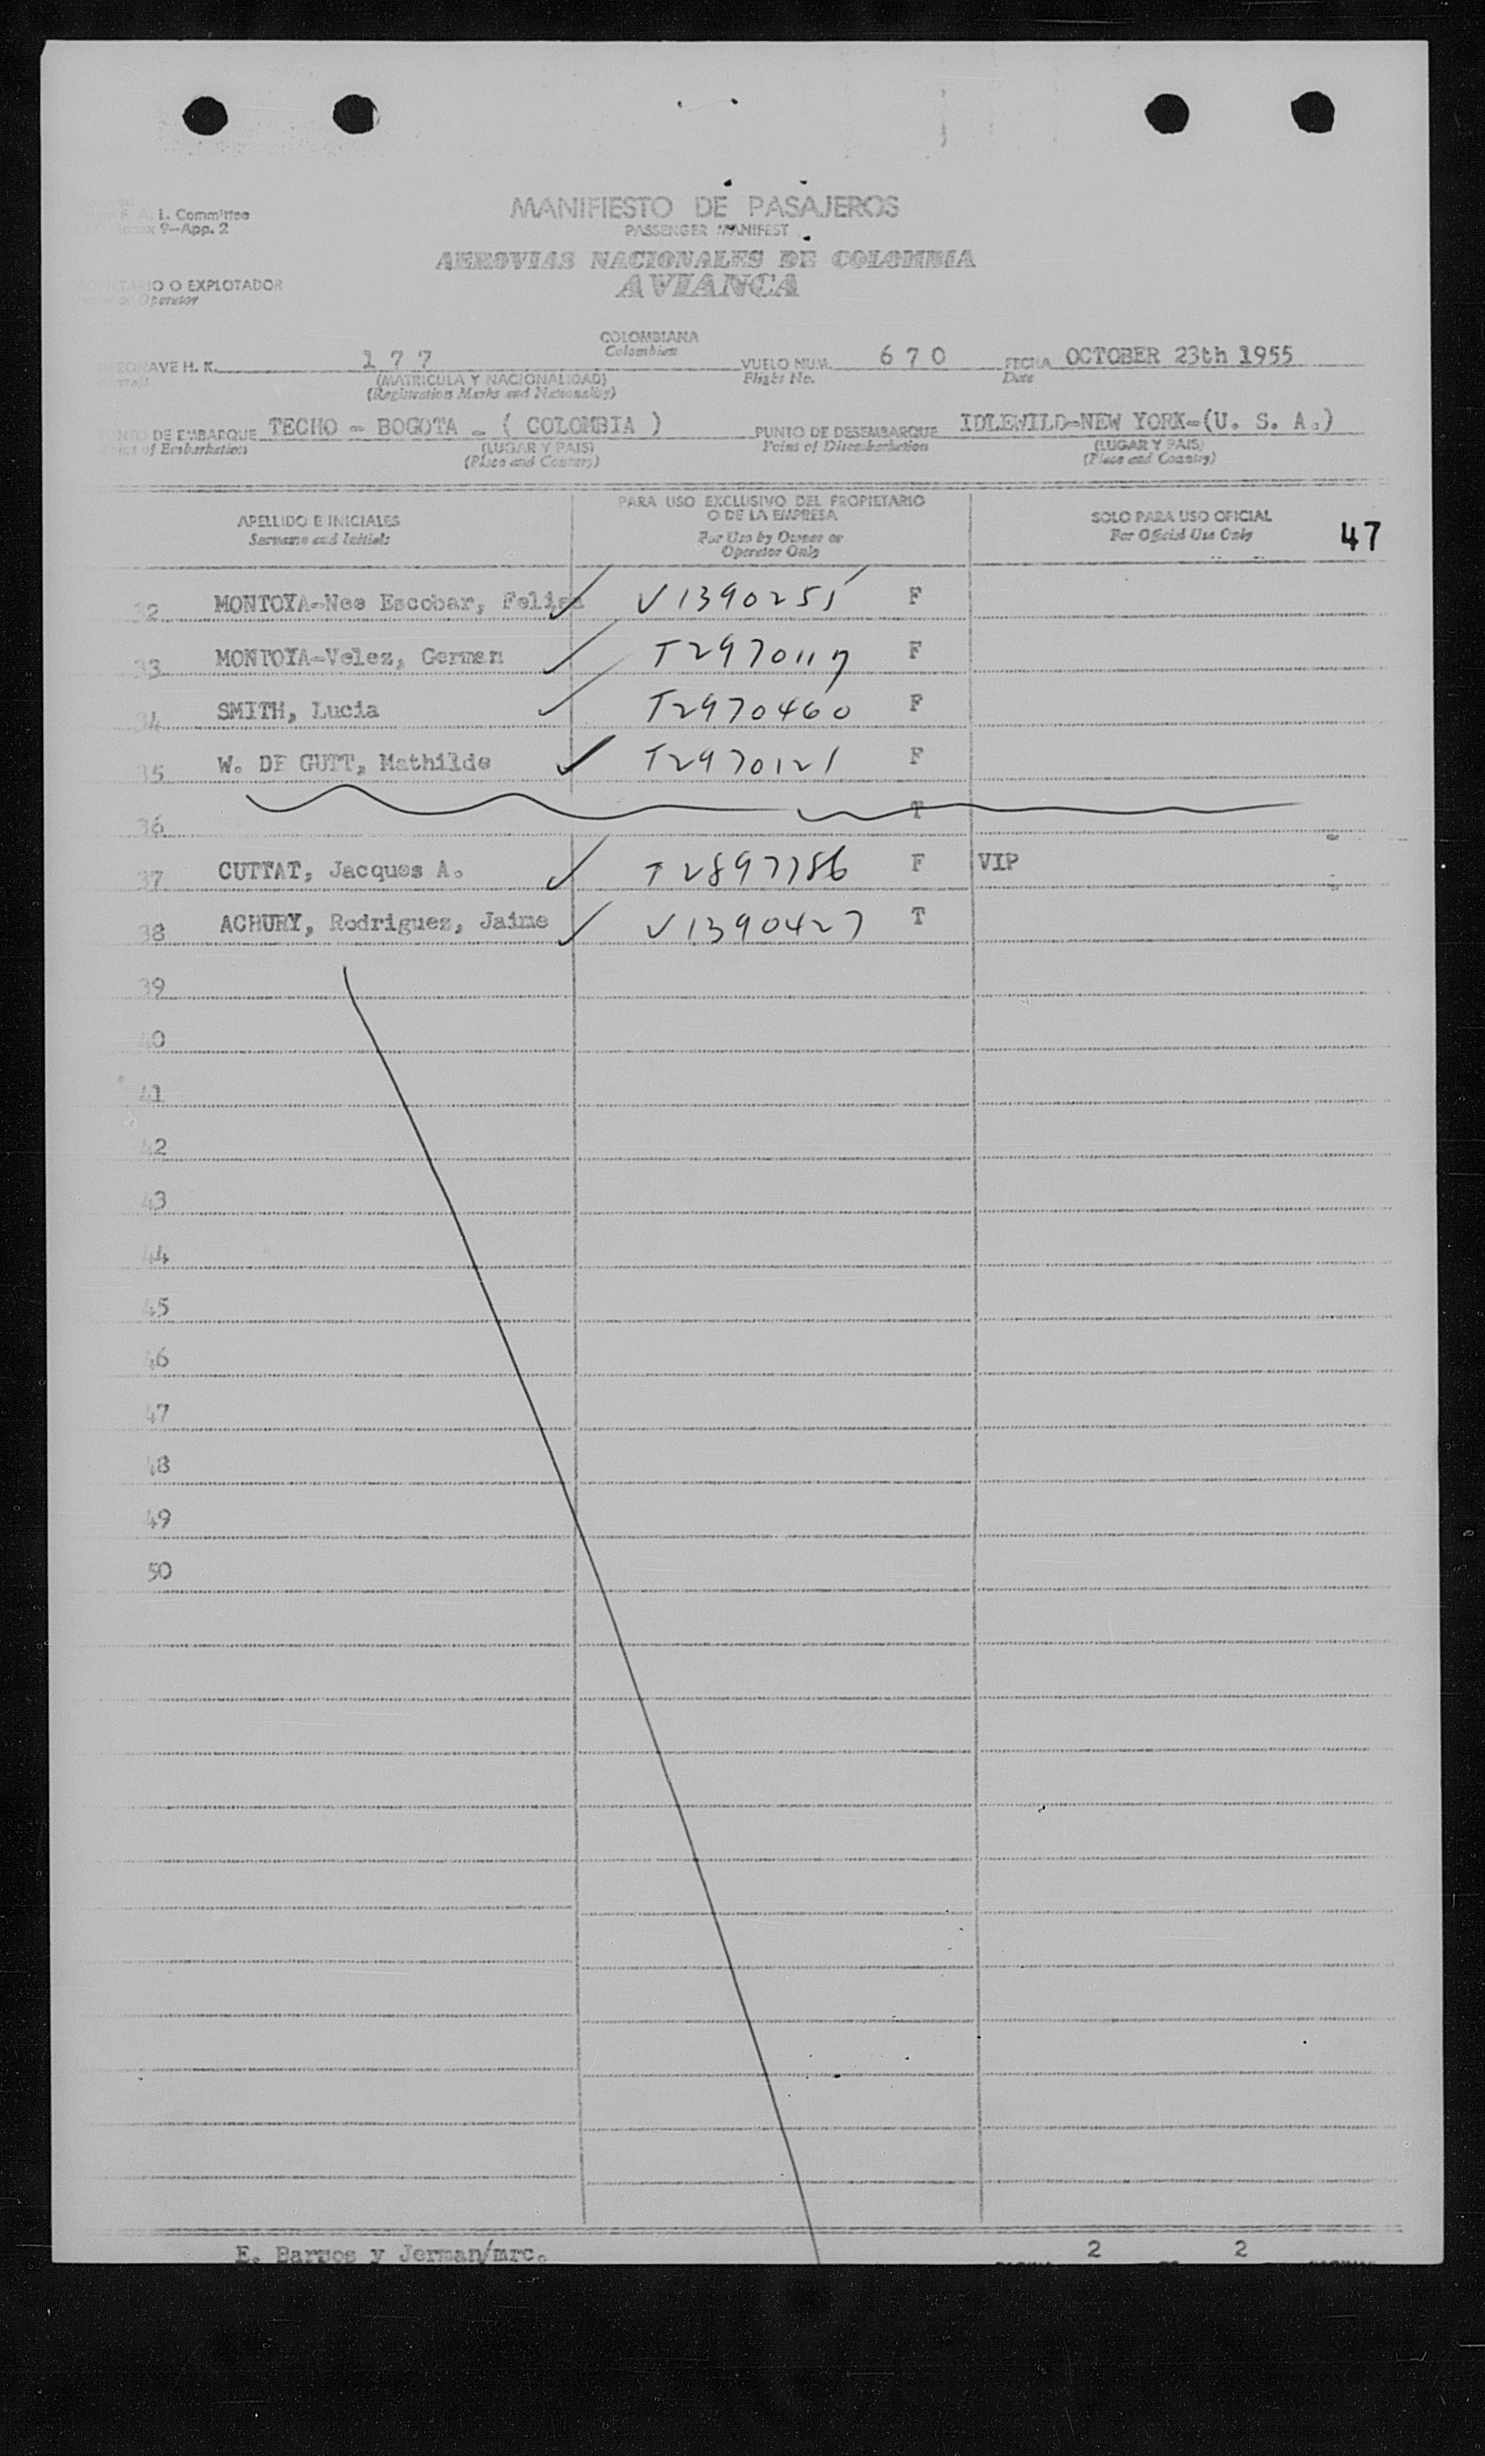 I. Committee
9-App. 2
MANIFIESTO DE PASAJEROS
PASSENGER MANIFEST
AEROVIAS NACIONALES DE COLOMBIA
AVIANCA
O EXPLOTADOR
Operator
COLOMBIANA
Colombian
AVE H. K. 177 VUELO NUM. 670 FECHA OCTOBER 23th 1955
(MATRICULA Y NACIONALIDAD) Flight No. Date
(Registration Marks and Nationality)
DE EMBARQUE TECHO - BOGOTA - ( COLOMBIA ) PUNTO DE DESEMBARQUE IDLEWILD-NEW YORK-(U. S. A.)
of Embarkation (LUGAR Y PAIS) Point of Disembarkation (LUGAR Y PAIS)
(Place and Country) (Place and Country)
APELLIDO E INICIALES
Surname and Initials
PARA USO EXCLUSIVO DEL PROPIETARIO
O DE LA EMPRESA
For Use by Owner or
Operator Only
SOLO PARA USO OFICIAL
For Official Use Only
47
32 MONTOYA-Nee Escobar, Felisa V1390251 F
33 MONTOYA-Velez, German T2970117 F
34 SMITH, Lucia T2970460 F
35 W. DE GUTT, Mathilde T2970121 F
36 T
37 CUTTAT, Jacques A. T2897786 F VIP
38 ACHURY, Rodriguez, Jaime V1390427 T
39
40
41
42
43
44
45
46
47
48
49
50
E. Barros y Jerman/mrc. 2 2